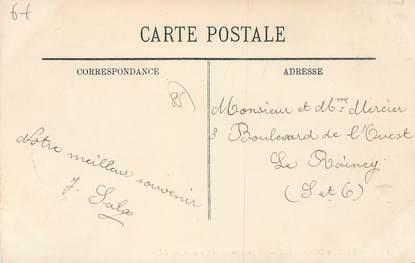 64
CARTE POSTALE
CORRESPONDANCE
85
Notre meilleur souvenir
J. Sala
ADRESSE
Monsieur et Mme Mercier
3 Boulevard de l'Ouest
Le Raincy
(S et O)